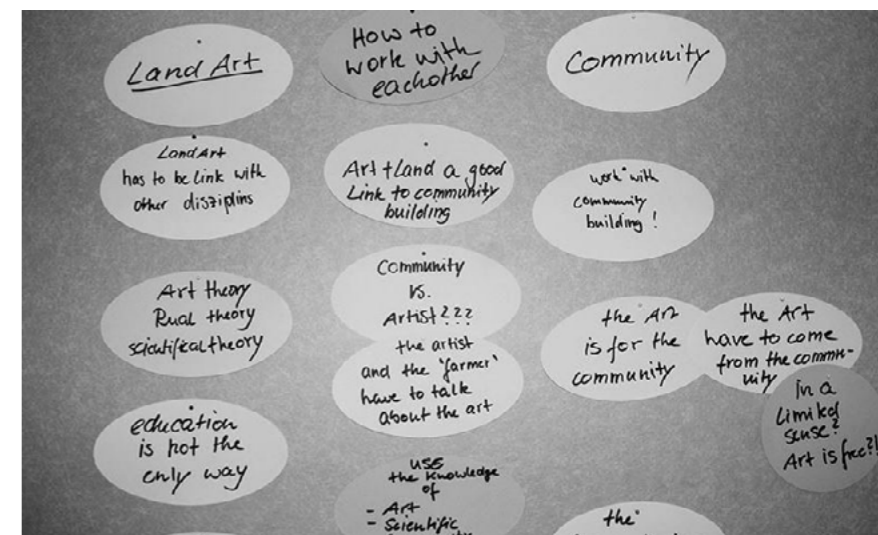 Land Art
Land Art
has to be link with
other disziplins
Art theory
Rual theory
scientifical theory
education
is not the
only way
How to
work with
eachother
Art + Land a good
Link to community
building
Community
vs.
Artist???
the artist
and the 'farmer'
have to talk
about the art
USE
the knowledge
of
- Art
- Scientific
Community
work with
community
building!
the Art
is for the
community
the Art
have to come
from the commu-
nity
In a
limited
sense?
Art is free?!
the